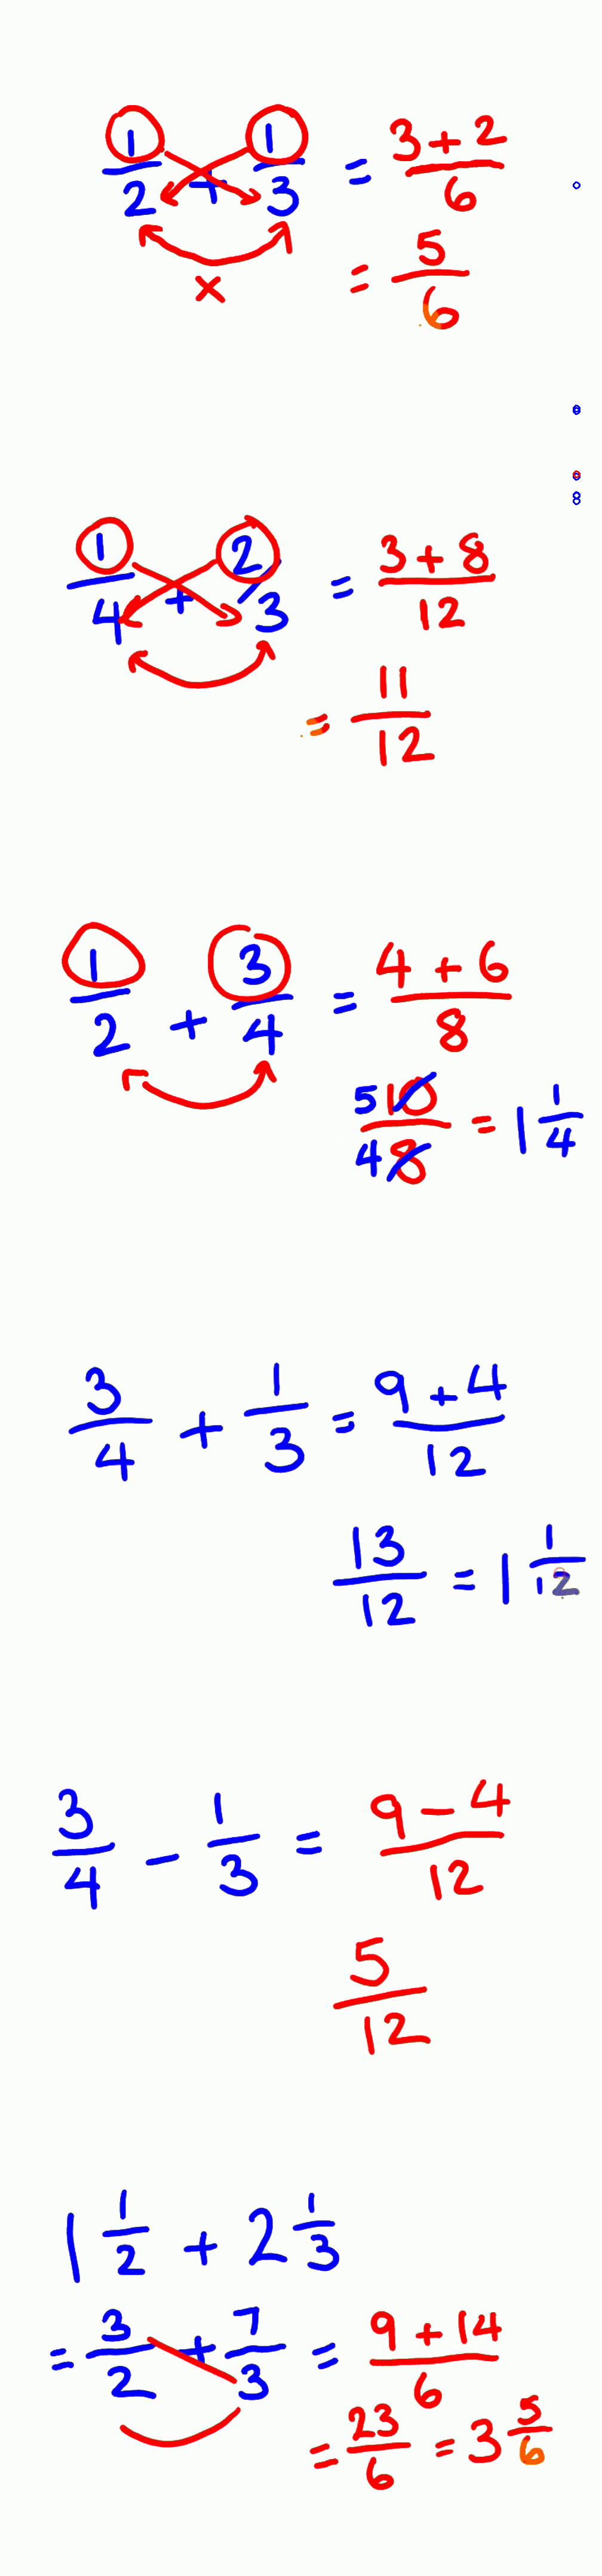 1/2 + 1/3 = (3 + 2)/6
×
= 5/6
1/4 + 2/3 = (3 + 8)/12
= 11/12
1/2 + 3/4 = (4 + 6)/8
5 10/4 8 = 1 1/4
3/4 + 1/3 = (9 + 4)/12
13/12 = 1 1/12
3/4 − 1/3 = (9 − 4)/12
5/12
1 1/2 + 2 1/3
= 3/2 + 7/3 = (9 + 14)/6
= 23/6 = 3 5/6